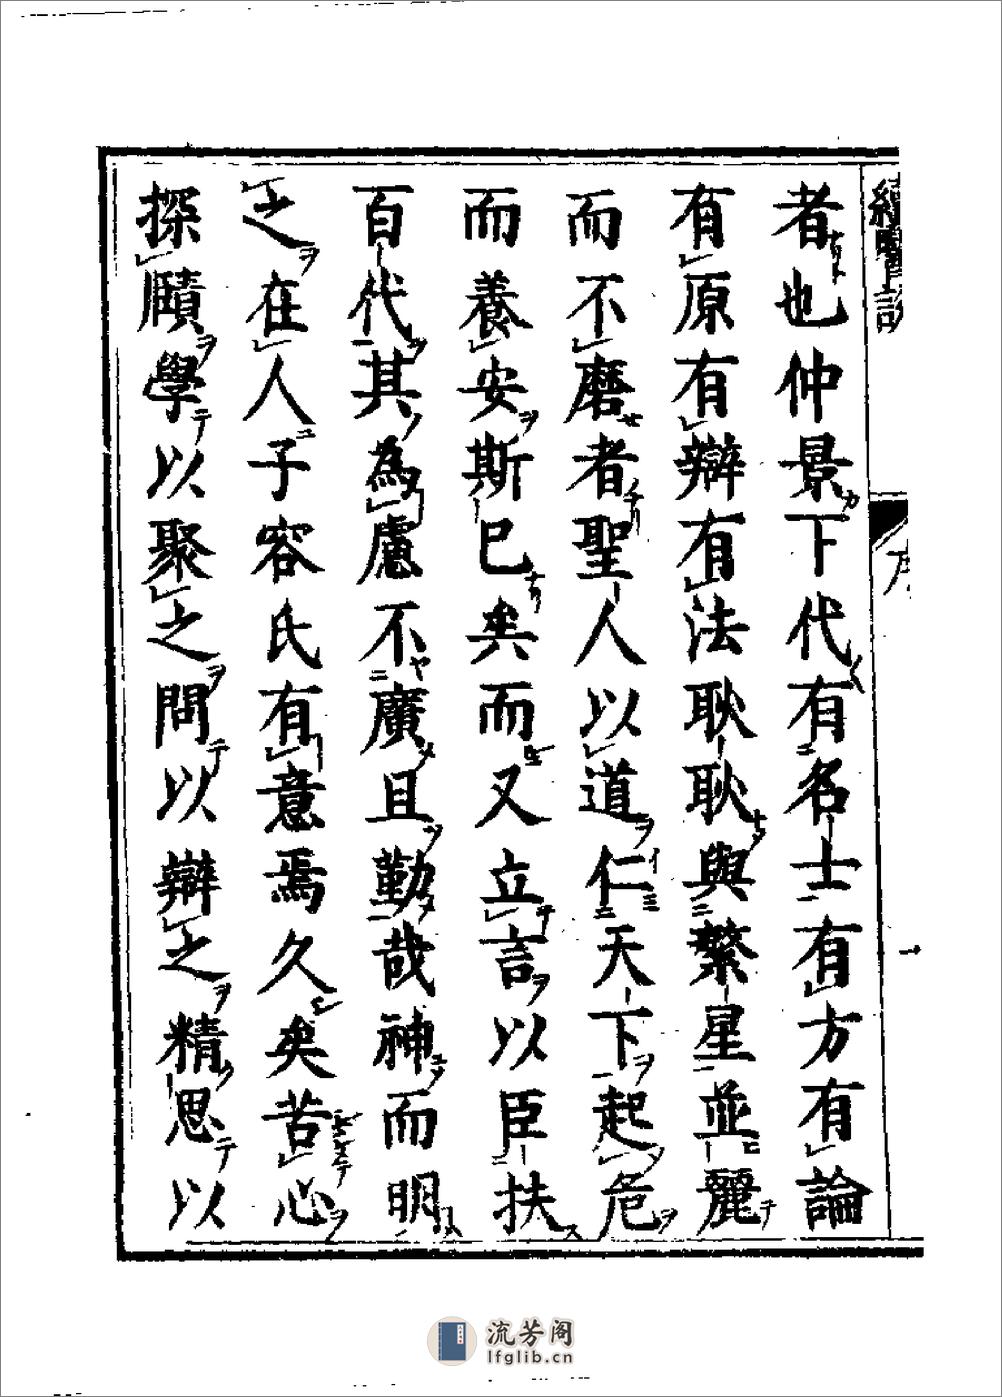 續醫說
序
者也仲景下代有名士有方有論
有原有辯有法耿耿與繁星並麗
而不磨者聖人以道仁天下起危
而養安斯已矣而又立言以臣扶
百代其為慮不廣且勤哉神而明
之在人子容氏有意焉久矣苦心
探賾學以聚之問以辯之精思以
流芳阁
lfglib.cn